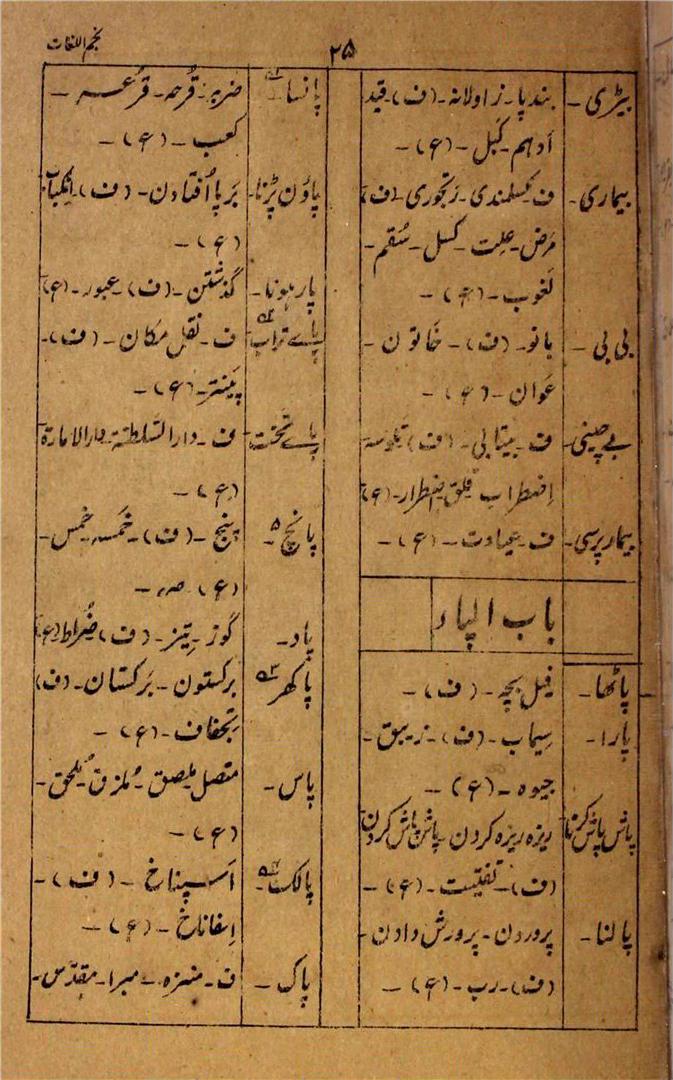 ۲۵
نجم اللغات
بیڑی - بند پا - زاولانہ - (ف) قید
ادہم - کَبَل - (ع) -
بیماری - ف کسلمندی - رنجوری - (ف)
مَرَض - علِت - کسل - سُقم -
لغوب - (ع) -
بی بی - بانو - (ف) - خاتون -
عَوان - (ع) -
بے چینی - ف - بیتابی - (ف)
اِضطراب قلق - (ع)
بیمار پرسی - ف - عیادت - (ع) -
باب الپاء
پاٹھا - فیل بچہ - (ف) -
پارا - سیماب - (ف) - زیبق -
جیوہ - (ع) -
پاش پاش کرنا ریزہ ریزہ کردن - پاش پاش کردن
(ف) - تفتیت - (ع) -
پالنا - پروردن - پرورش دادن -
(ف) - رب - (ع) -
پانسا - قُرحہ - قرعہ -
کعب - (ع) -
پاؤں پڑنا - بَرپا اُفتادن - (ف) -
(ع) -
پار ہونا - گذشتن - (ف) - عبور - (ع)
پاے تراب ف - نقل مکان - (ف) -
(ع) -
پاے تخت - ف - دار السّلطنۃ دار الامارۃ
(ع) -
پانچ ۵ - پنج - (ف) - خَمسہ - خَمس -
(ع)
پاد - گوز - تیز - (ف) ضُراط (ع)
پاکھر برکستون - بَرکستان - (ف)
تجفاف - (ع) -
پاس - متصل ملصق - مُلزق مُلحق -
(ع) -
پالک - اَسپناخ - (ف) -
اِسفاناخ - (ع) -
پاک - ف - منزہ - مبرا - مقدّس -